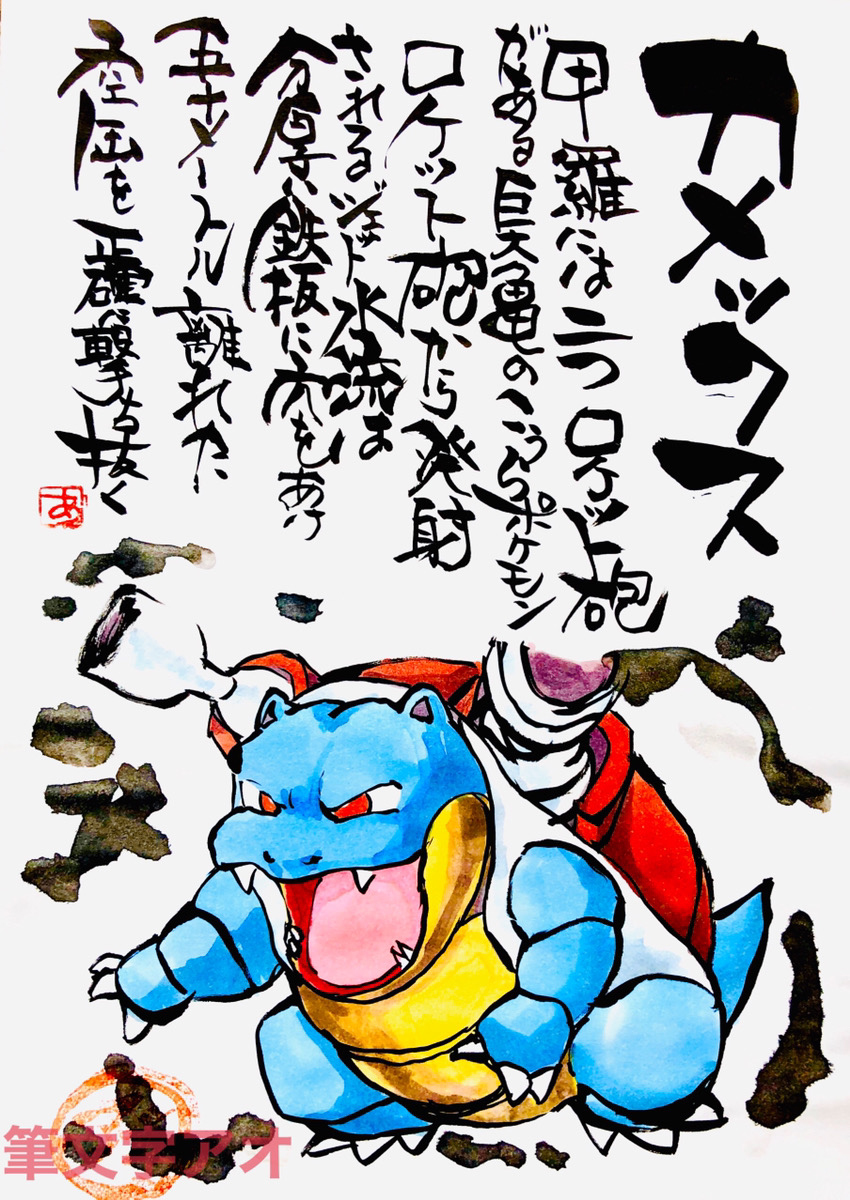 カメックス
甲羅には二つロケット砲
がある巨大亀のこうらポケモン
ロケット砲から発射
されるジェット水流は
分厚い鉄板に穴をあけ
五十メートル離れた
空缶を正確に撃ち抜く
あ
筆文字アオ